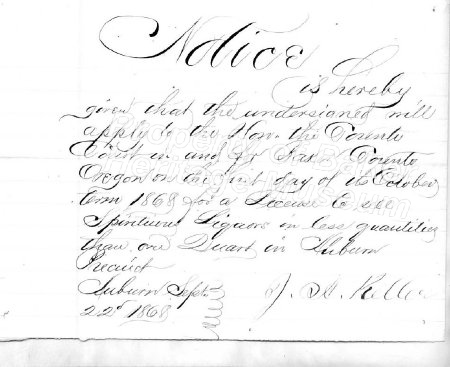 Notice
is hereby
given that the undersigned will
apply to the Hon. the County
Court in and for Baker County
Oregon on the first day of its October
term 1868 for a License to sell
Spirituous Liquors in less quantities
than one Quart in Auburn
Precinct
Auburn Sept.
22d 1868